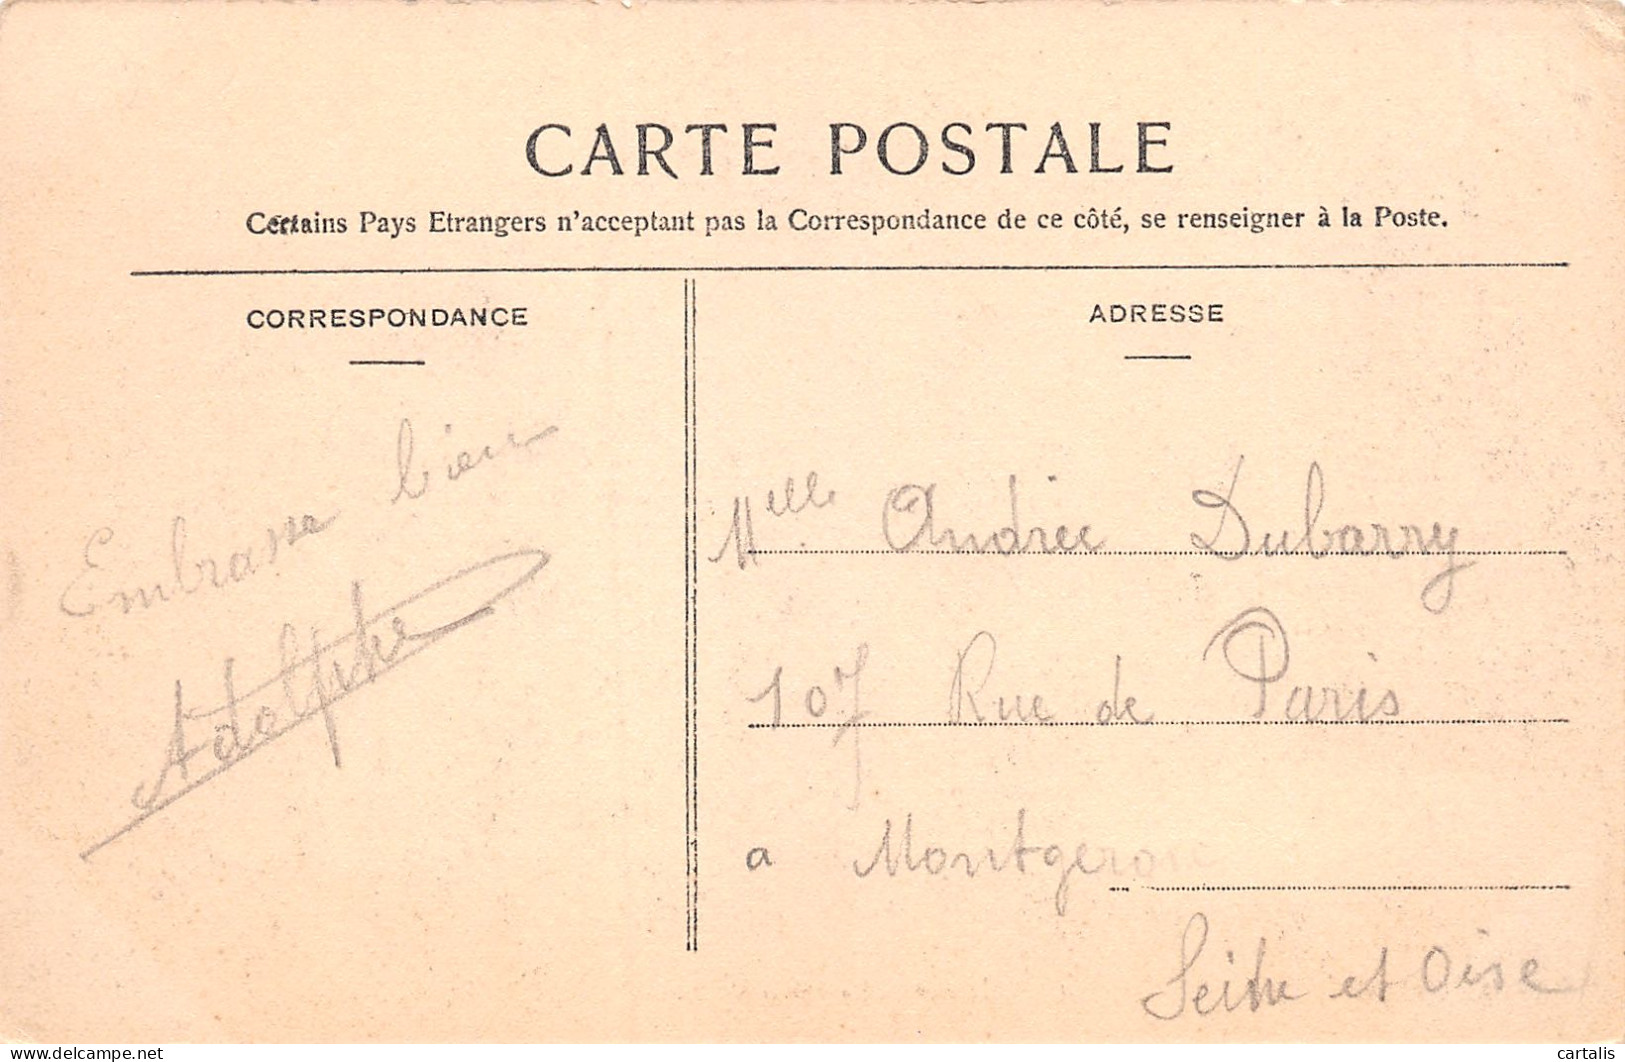 CARTE POSTALE
Certains Pays Etrangers n'acceptant pas la Correspondance de ce côté, se renseigner à la Poste.
CORRESPONDANCE
ADRESSE
Embrasse bien
Adolphe
Melle Andrée Dubarry
107 Rue de Paris
a Montgeron
Seine et Oise
www.delcampe.net
cartalis